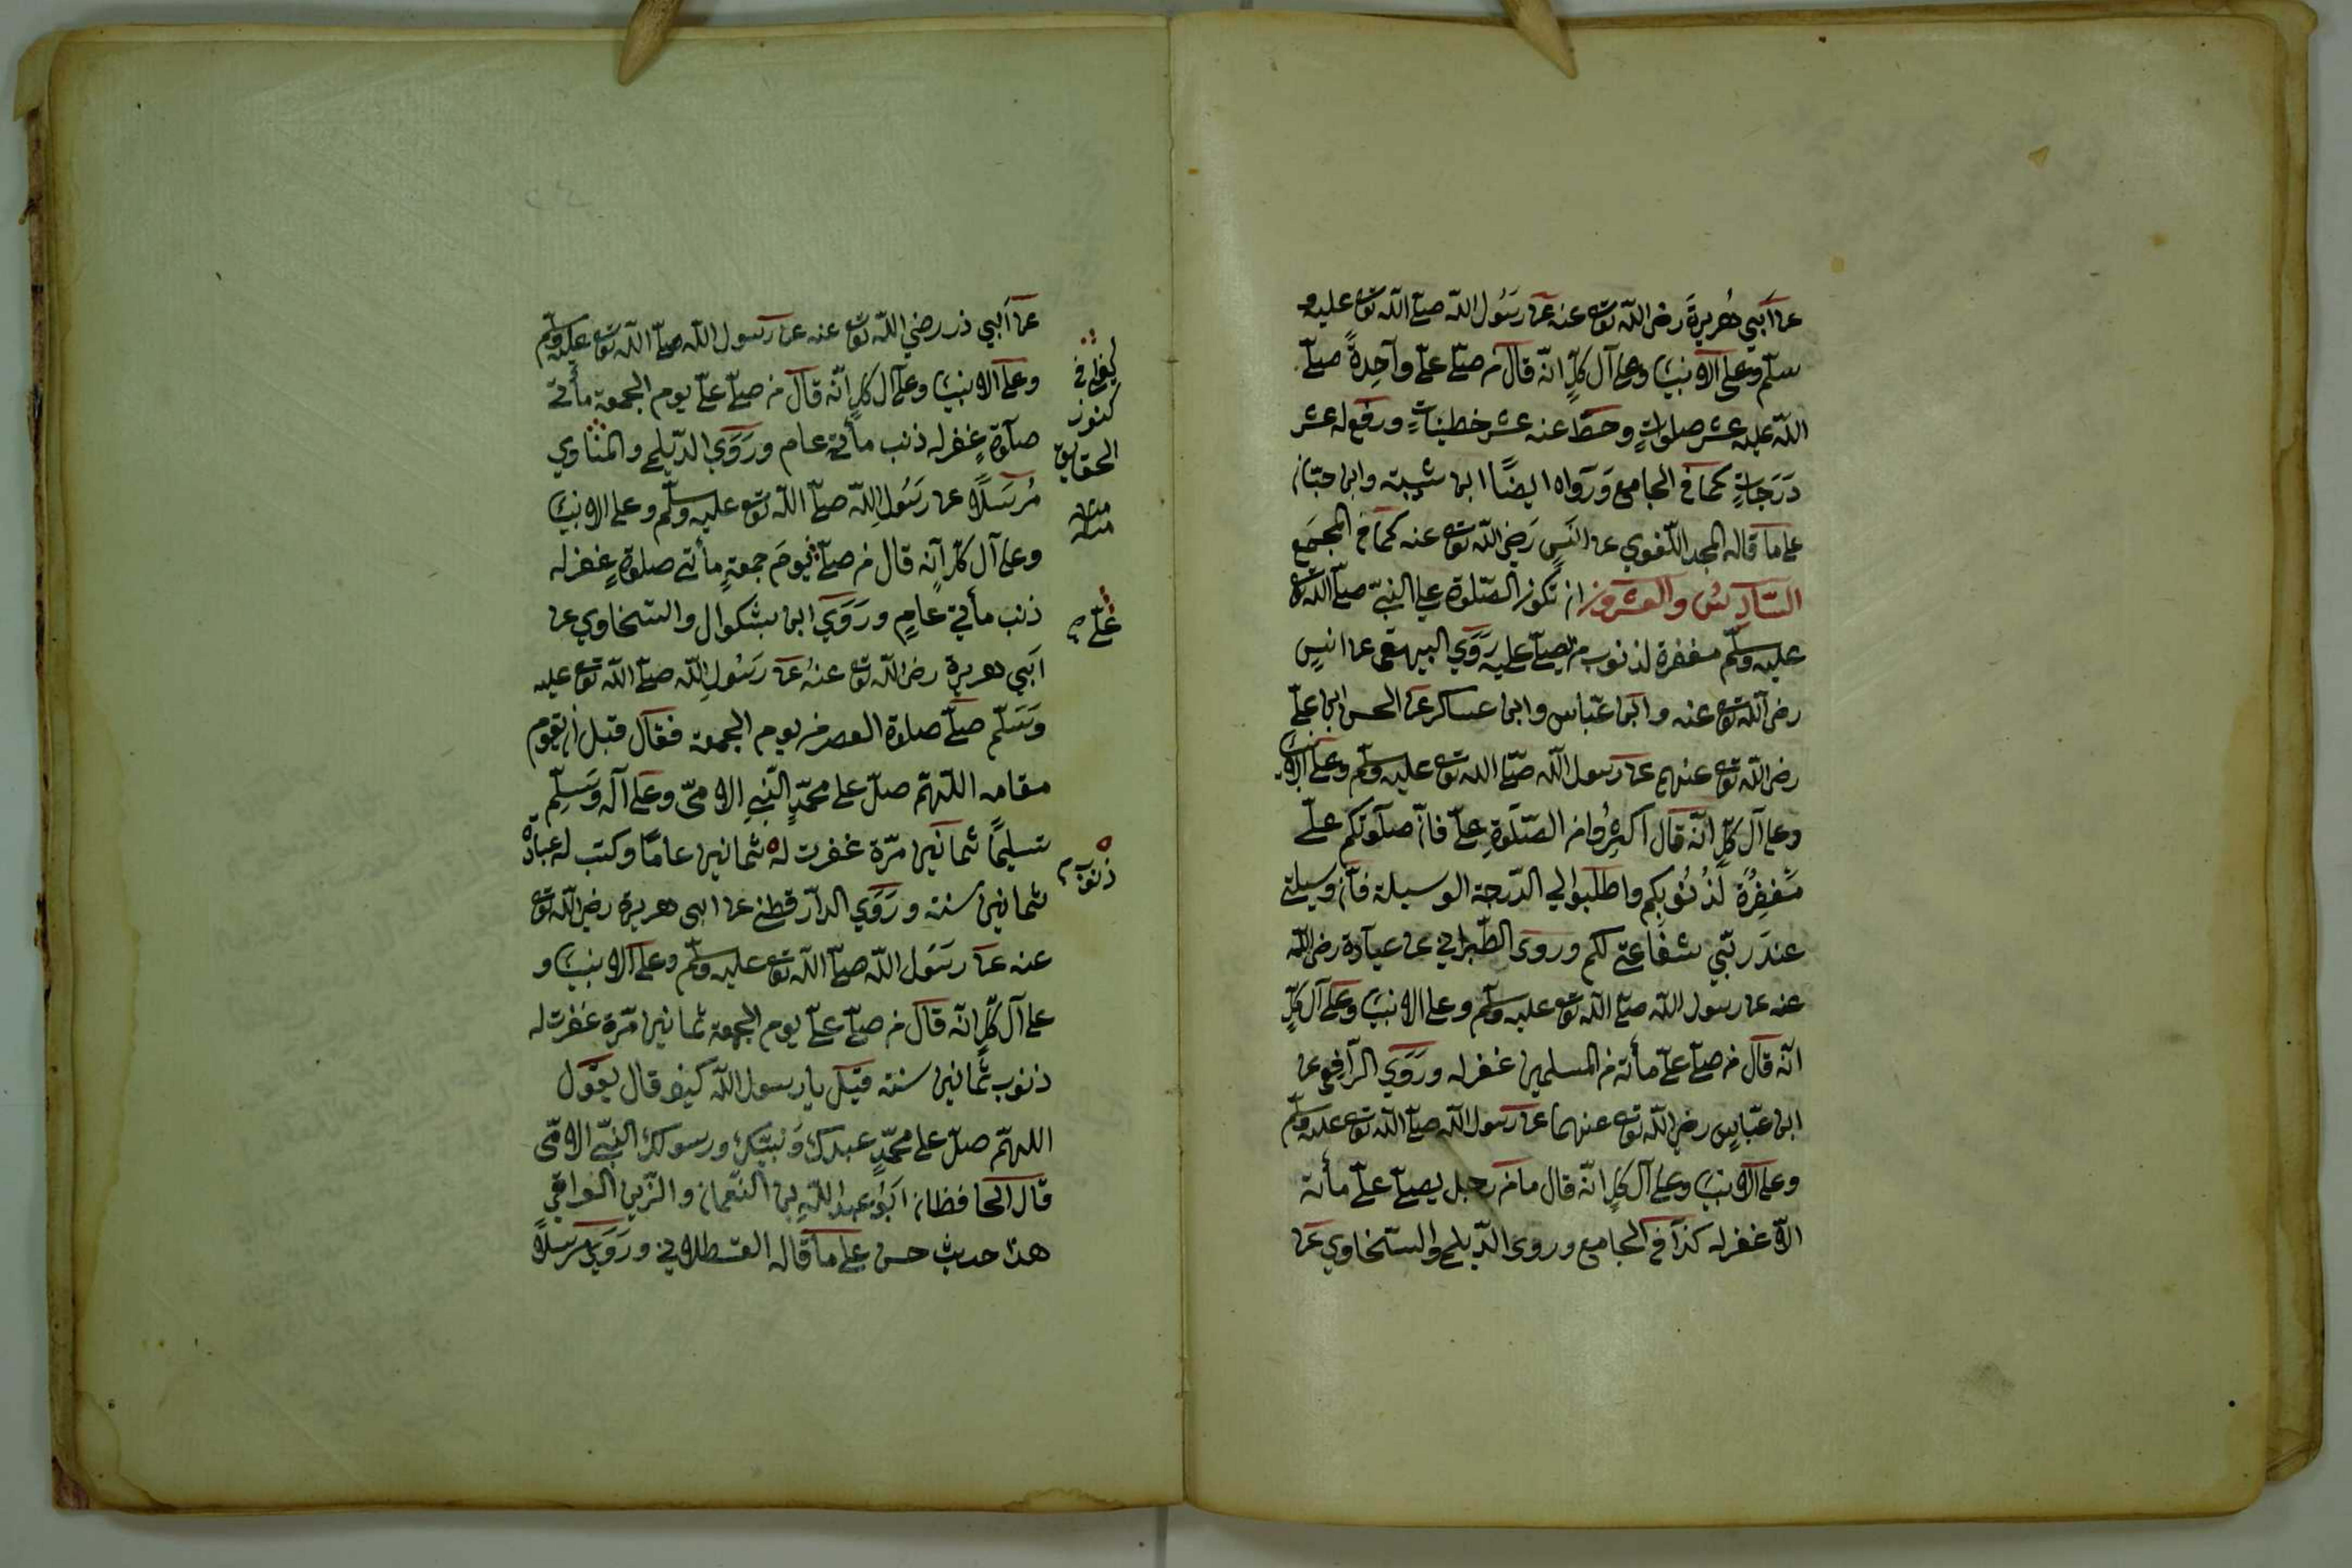 عن أبي هُريرةَ رضى اللّه تع عنه عن رسُول اللّه صلّى اللّه تع عليه و
سلّم وعلى الانبيا وعلى آل كلٍّ انّه قال من صلّى علىّ وآحِدةً صلّى
اللّه عليه عشر صلوَاتٍ وحطّ عنه عشر خطيئاتٍ ورفع له عشر
دَرَجاتٍ كما في الجامع وَرَواه ايضًا ابن شيبة وابن حبّان
على ما قاله المجد اللّغوي عن انَسٍ رَضى اللّه تع عنه كما في المجمَع
السّادِسُ والعشرون ان تكون الصّلوة على النبيّ صلّى اللّه تع
عليه وسلّم مغفرة لذنوب من يصلّى عليه رَوَي البيهقى عن انسٍ
رضى اللّه تع عنه وابن عبّاس وابن عساكر عن الحسن ابن علىّ
رضى اللّه تع عنهم عن رسول اللّه صلّى اللّه تع عليه وسلّم وعلى الانبيا
وعلى آل كلّ انّه قال أكثِرُوا من الصّلوةِ علىّ فانّ صلوتكم علىّ
مَغفِرُة لَذُنُوبِكم واطلَبوا لي الدّرجة الوسيلة فانّ وسيلتى
عندَ ربّي شفاعتى لكم وروى الطّبرانى عن عبادة رضى اللّه
عنه عن رسول اللّه صلّى اللّه تع عليه وسلّم وعلى الانبيا وعلى آل كلٍّ
انّه قال من صلّى علىّ مأئة من المسلمين غفر له ورَوَي الرّافِعى عن
ابن عبّاسٍ رضى اللّه تع عنهما عن رسول اللّه صلّى اللّه تع عليه وسلّم
وعلى الانبيا وعلى آل كلٍّ انّه قال ما من رجل يصلّى علىّ مأئة
الاّ غفر له كذا في الجامع وروى الدّيلمى والسّخاوي عن
عن أَبي ذر رضي اللّه تع عنه عن رسول اللّه صلّى اللّه تع عليه وسلّم
وعلى الانبيا وعلى آل كلٍّ انّه قال من صلّى علىّ يوم الجمعة مأتى
صلوةٍ غفر له ذنب مأتى عام ورَوَي الدّيلمى والمناوي
مُرسَلًا عن رَسُولِ اللّه صلّى اللّه تع عليه وسلّم وعلى الانبيا
وعلى آل كلّ انّه قال من صلّى يومَ جمعةٍ مأتى صلوةٍ غفر له
ذنب مأتى عامٍ ورَوَي ابن بشكوال والسّخاوي عن
اَبي هريرة رضى اللّه تع عنهُ عن رَسُولِ اللّه صلّى اللّه تع عليه
وَسَلّم صلّى صلاوة العصر من يوم الجمعة فقال قبل ان يقوم
مقامه اللّهمّ صلّ على محمّدٍ النّبيِ الامىّ وعلى آله وَسَلِّم
تسليمًا ثمانين مرّة غفرت له ثمانين عامًا وكتب له عبادة
ثمانين سنة ورَوَي الدّارقطنى عن ابى هريرة رضى اللّه تع
عنه عن رسَول اللّه صلّى اللّه تع عليه وسلّم وعلى الانبيا و
على آل كلّ انّه قال من صلّى علىّ يوم الجمعة ثمانين مرّة غفرت له
ذنوب ثمانين سنة قيل يا رسول اللّه كيف قال يقول
اللهمّ صلّ على محمّدٍ عبدك وَنبيّك ورسولك النّبيّ الامّى
قال الحافظان اَبُو عبد اللّهِ بن النّعمان والزّين العراقي
هذا حديث حسن على ما قاله القسطلاني ورَوَي مرسَلًا
كنوز
الحقايق
منه
علىّ صح
ذنوب